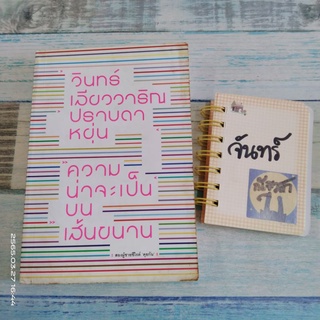 วินทร์
เลียววาริณ
ปราบดา
หยุ่น
ความ
น่าจะเป็น
บน
เส้นขนาน
จันทร์
2565.03.27 16:44